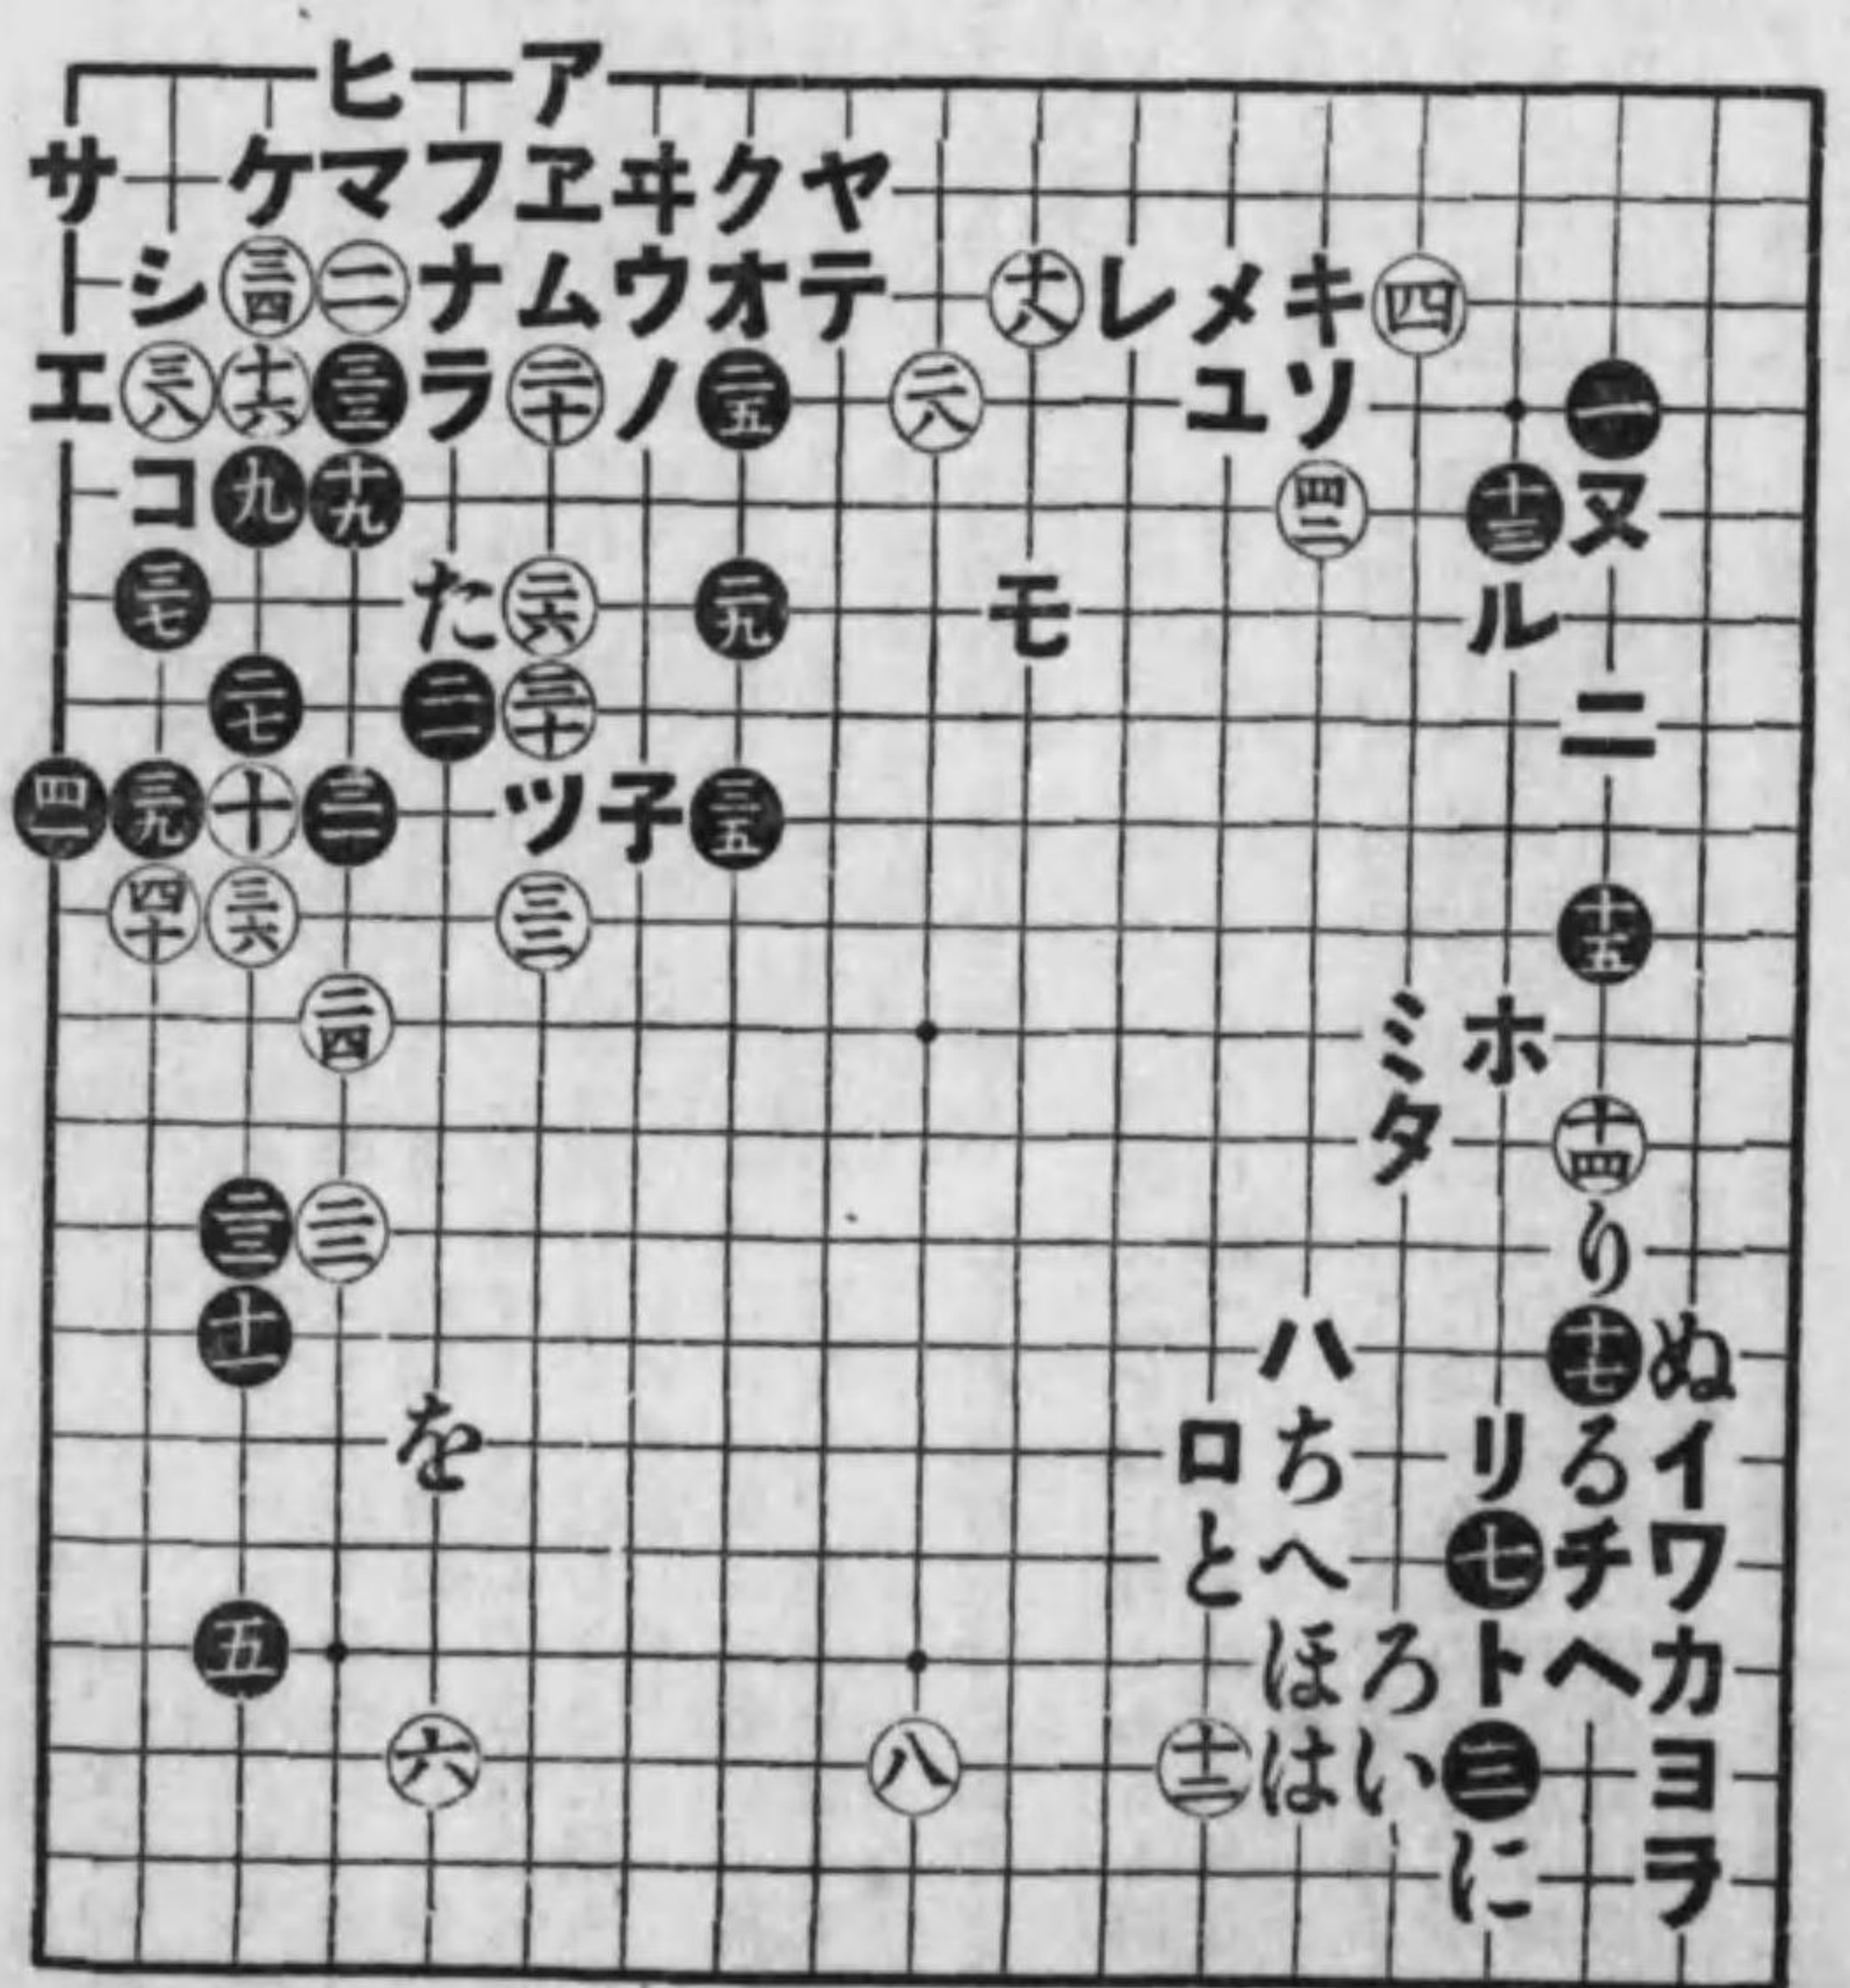 ヒ ア
サ ケ マ フ ヱ ヰ ク ヤ
シ 三四 二 ナ ム ウ オ テ 十八 レ メ キ 四
エ 三八 十六 三三 ラ 二十 ノ 二五 二八 ユ ソ 一
コ 九 十九 四二 十三 ヌ
三七 た 二六 二九 モ ル
二七 二一 三十 ニ
四一 三九 十 三一 ツ 子 三五
四十 三六 三二 十五
二四 ミ ホ
タ 十四
二三 二二 り
十一 ハ 十七 ぬ
を ロ ち リ る イ
と へ 七 チ ワ
五 ほ ろ ト ヘ カ
六 八 十二 は い 三 ヨ
に ヲ